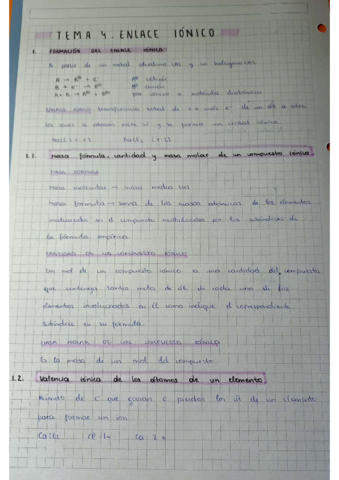 TEMA 4. ENLACE IÓNICO
1. FORMACIÓN DEL ENLACE IÓNICO
A partir de un metal alcalino (A) y un halógeno (B).
catión
anión
par iónico o molécula diatómica
ENLACE IÓNICO: transferencia total de 1 o más e⁻ de un át. a otro
los iones se atraen entre sí y se forma un cristal iónico
1.1. Masa fórmula, cantidad y masa molar de un compuesto iónico
MASA FÓRMULA
Masa molecular → masa
Masa fórmula → suma de las masas atómicas de los elementos
involucrados en el compuesto multiplicadas por los subíndices de
la fórmula empírica.
CANTIDAD DE UN COMPUESTO IÓNICO
Un mol de un compuesto iónico es una cantidad del compuesto
que contenga tantos moles de át. de cada uno de los
elementos involucrados en él como indique el correspondiente
subíndice en su fórmula.
MASA MOLAR DE UN COMPUESTO IÓNICO
Es la masa de un mol del compuesto.
1.2. Valencia iónica de los átomos de un elemento
Número de e⁻ que ganan o pierden los át. de un elemento
para formar un ion.